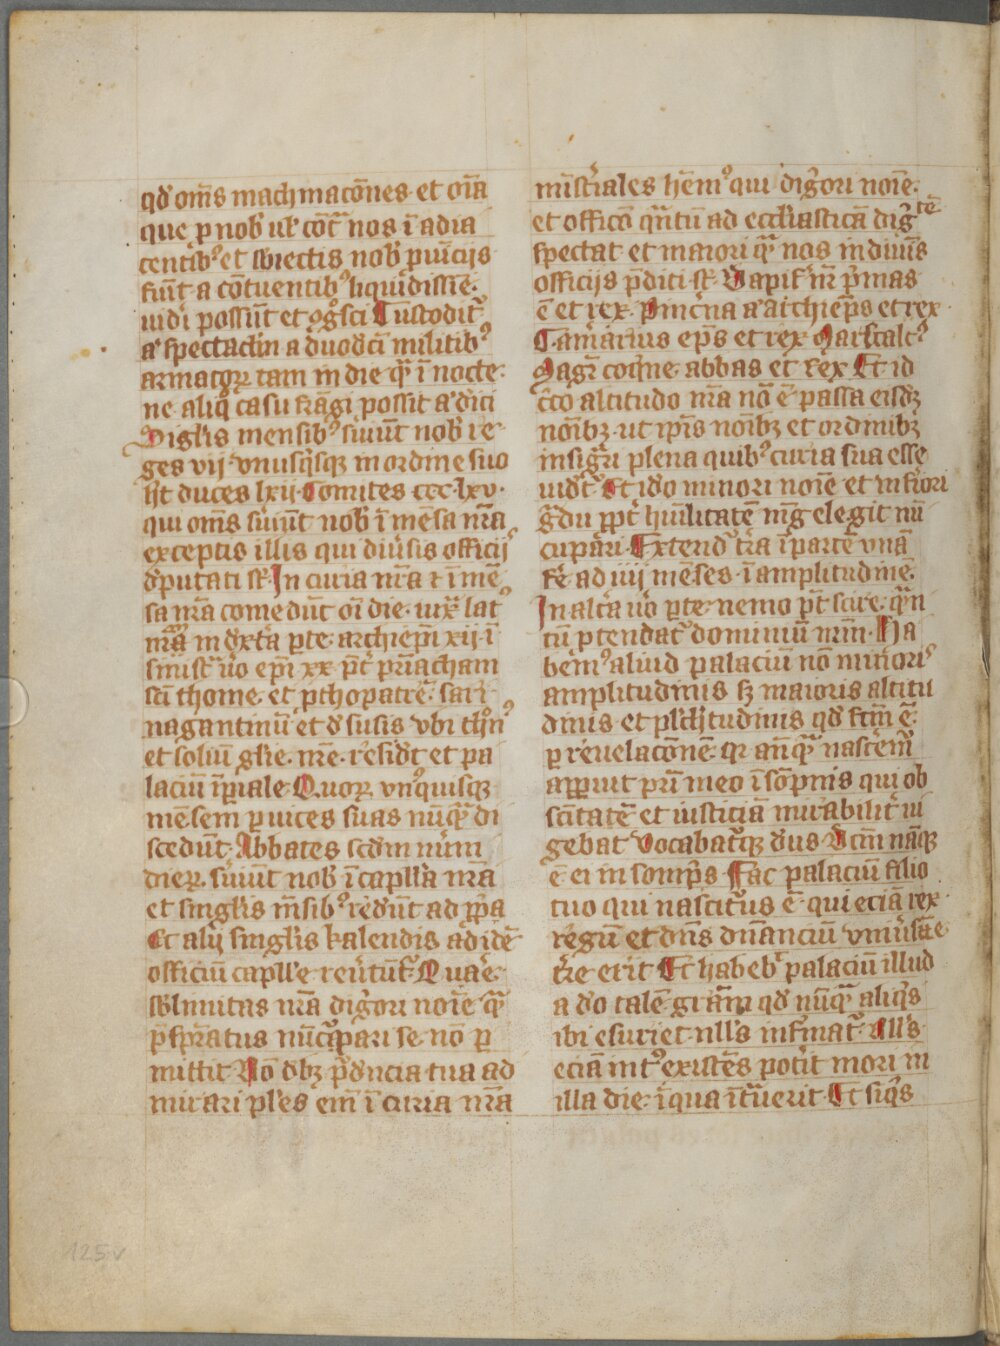 qđ om̄s machinacōnes et oīa
que ꝓ nob̓ ul̓ cōt̓ nos ī adia
centibꝰ et sb̓iectis nob̓ ꝓuīcijs
fiūt a cōtuentibꝰ liquidissīe
uid̓i possūt et ꝯg̓sci Custodit̓
a̓ spectaclm̄ a duodcī militibꝰ
armatoꝝ tam in die q̄ꝫ ī nocte
ne aliq̓ casu frāgi possit a̓ dici
Sigl̓is mensibꝰ s̓uiūt nob̓ re
ges vij vnusq̓sqꝫ in ordine suo
ht̄ duces lxij Comites ccc lxv
qui om̄s s̓uiūt nob̓ ī mēsa nr̄a
exceptis illis qui diu̓sis officij
d̓putati st̄ In curia nr̄a ⁊ ī mē
sa nr̄a comedūt oī die iux̄ lat
nr̄m in dext̓a ꝑte archiepī xij ī
sinist̓ ūo epī xx p̄t̓ pr̄iacham
scī thome et ꝓthopatrē sar̓
nagantinū et d̓ susis vbi th̓nꝰ
et soliū gl̓ie nr̄e residꝫ et pa
laciū īꝑiale Quoꝝ vnꝰquisqꝫ
mēsem ꝑ uices suas nūq̄ꝫ di
scedūt Abbates scd̄m nūm
dieꝝ s̓uiūt nob̓ ī capll̓a nr̄a
et singl̓is m̄sibꝰ redūt ad ꝓp̓a
Et alij singl̓is kalendis ad idē
officiū capll̓e reu̓tūt̓ Quare
sb̓limitas nr̄a dig̓ori noīe q̄ꝫ
p̄sbr̄atus nūcupari se nō ꝑ
mittit Nō d̓bꝫ pr̄udēcia tua ad
mirari pl̓es em̄ ī curia nr̄a
minist̓iales hēmꝰ qui dig̓ori noīe
et officō q̄ntū ad eccl̓iasticā dig̓tē
spectat et maiori q̄ꝫ nos in diuīs
officijs p̄diti st̄ Dapif̓ nr̄ p̓mas
ē et rex Pincn̄a a̓ archiep̄s et rex
Camārius ep̄s et rex Marscalcꝰ
Magr̄ coq̓ne abbas et rex Et id
c̓co altitudo nr̄a nō ē passa eisdꝫ
noīb̄ꝫ ut ip̄is noīb̄ꝫ et ordinibꝫ
insigr̄i plena quibꝰ curia sua esse
uidet̓ Et id̓o minori noīe et infiori
g̓du ꝓpt̓ humilitatē mag̓ elegit nū
cupari Extend̓ tr̄a ī partē vnā
fe̓ ad iiij mēses ī amplitudinē
In alt̓a ūo ꝑte nemo pōt scire q̄n
tū ꝓtendat̓ dominiū nrm̄ Ha
bēmꝰ aliud palaciū nō minoris
amplitudinis sꝫ maioris altitu
dinis et pl̓critudinis qđ fcm̄ ē
ꝑ reuelacōnē q̄ anq̄ꝫ nascēm̄
apparuit pr̄i meo ī sōpnis qui ob
sc̄itatē et iusticiā mirabilit̓ ui
gebat vocabat̓qꝫ d̓us Dictū nāqꝫ
ē ei in somp̄s Fac palaciū filio
tuo qui nascit̓us ē qui eciā rex
regū et dn̄s dn̄anciū vniu̓se
tr̄e erit Et habeb̓ palaciū illud
a do talē gr̄am qđ nūq̄ꝫ aliq̓s
ibi esuriet null̓s infirmat̓ null̓s
eciā intꝰ existēs potit̓ mori in
illa die ī qua īt̓uerit Et siq̓s
125v